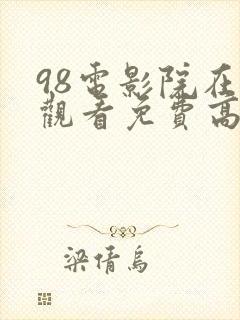 98電影院在
觀看免費高
梁倩烏